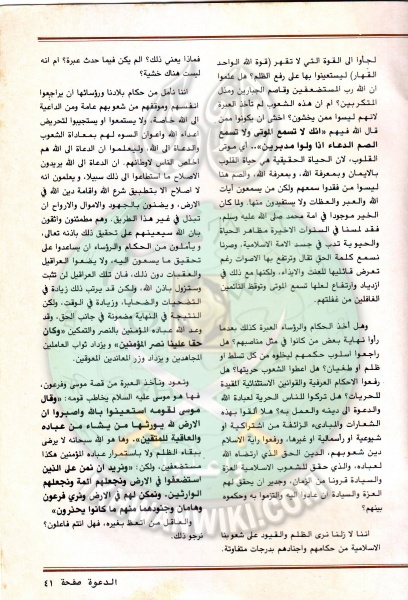 لجأوا الى القوة التي لا تقهر (قوة الله الواحد
القهار) ليستعينوا بها على رفع الظلم؟ هل علموا
ان الله رب المستضعفين وقاصم الجبارين ومذل
المتكبرين؟ ام ان هذه الشعوب لم تأخذ العبرة
لانهم ليسوا ممن يخشون؟ اخشى أن يكونوا ممن
قال الله فيهم «انك لا تسمع الموتى ولا تسمع
الصم الدعاء اذا ولوا مدبرين».. أي موتى
القلوب، لان الحياة الحقيقية هي حياة القلوب
بالايمان وبمعرفة الله، وبمعرفة الله، والصم هنا
ليسوا من فقدوا سمعهم ولكن من يسمعون آيات
الله والعبر والعظات ولا يستفيدون منها. ولما كان
الخير موجودا في امة محمد صلى الله عليه وسلم:
فقد لمسنا في السنوات الاخيرة مظاهر الحياة
والحيوية تدب في جسد الامة الاسلامية، وصرنا
نسمع كلمة الحق تقال وترتفع بها الاصوات رغم
تعرض قائليها للعنت والايذاء، ولكنها مع ذلك في
ازدياد وارتفاع لعلها تسمع الموتى وتوقظ النائمين
الغافلين من غفلتهم.
وهل أخذ الحكام والرؤساء العبرة كذلك بعدما
رأوا نهاية بعض من كانوا في مثل مناصبهم؟ هل
راجعوا اسلوب حكمهم ليخلوه من كل تسلط او
ظلم او طغيان؟ هل اعطوا الشعوب حريتها؟ هل
رفعوا الاحكام العرفية والقوانين الاستثنائية المقيدة
للحريات؟ هل تركوا للناس الحرية لعبادة الله
والدعوة الى دينه والعمل به؟ هلا ألقوا بهذه
الشعارات والمبادىء الزائفة من اشتراكية او
شيوعية او رأسمالية او غيرها، ورفعوا راية الاسلام
دين شعوبهم، الدين الحق الذي ارتضاه الله
لعباده، والذي حقق للشعوب الاسلامية العزة
والسيادة قرونا من الزمان، وجدير ان يحقق لهم
العزة والسيادة ان عادوا اليه والتزموا به وحكموه
بينهم؟
اننا لا زلنا نرى الظلم والقيود على شعوبنا
الاسلامية من حكامهم واجنادهم بدرجات متفاوتة.
فماذا يعني ذلك؟ الم يكن فيما حدث عبرة؟ ام انه
ليست هناك خشية؟
اننا نأمل من حكام بلادنا ورؤسائها ان يراجعوا
انفسهم وموقفهم من شعوبهم عامة ومن الداعية
الى الله خاصة، ولا يستمعوا او يستجيبوا لتحريض
أعداء الله واعوان السوء لهم بمعاداة الشعوب
والدعاة الى الله، وليعلموا ان الدعاة الى الله هم
اخلص الناس لاوطانهم. ان الدعاة الى الله يريدون
الاصلاح ما استطاعوا الى ذلك سبيلا، ويعلمون انه
لا اصلاح الا بتطبيق شرع الله واقامة دين الله في
الارض، ويضنون بالجهود والاموال والارواح ان
تبذل في غير هذا الطريق، وهم مطمئنون واثقون
بان الله سيعينهم على تحقيق ذلك باذنه تعالى،
ويأملون من الحكام والرؤساء ان يساعدوا على
تحقيق ما يسعون اليه، ولا يضعوا العراقيل
والعقبات دون ذلك، فان تلك العراقيل لن تثبت
وستزول باذن الله، ولكن قد يترتب ذلك زيادة في
التضحيات والضحايا، وزيادة في الوقت، ولكن
النتيجة في النهاية مضمونة في جانب الحق، وقد
وعد الله عباده المؤمنين بالنصر والتمكين «وكان
حقا علينا نصر المؤمنين» ويزداد ثواب العاملين
المجاهدين و يزداد وزر المعاندين المعوقين.
ونعود ونأخذ العبرة من قصة موسى وفرعون،
فها هو موسى عليه السلام يخاطب قومه: «وقال
موسى لقومه استعينوا بالله واصبروا ان
الارض لله يورثها من يشاء من عباده
والعاقبة للمتقين».. وها هو الله سبحانه لا يرضى
ببقاء الظلم ولا باستمرار عباده المؤمنين هكذا
مستضعفين، ولكن: «ونريد ان نمن على الذين
استضعفوا في الارض ونجعلهم أئمة ونجعلهم
الوارثين، ونمكن لهم في الارض ونري فرعون
وهامان وجنودهما منهم ما كانوا يحذرون»
والعاقل من اتعظ بغيره، فهل انتم فاعلون؟
نرجو ذلك.
الدعوة صفحة ٤١